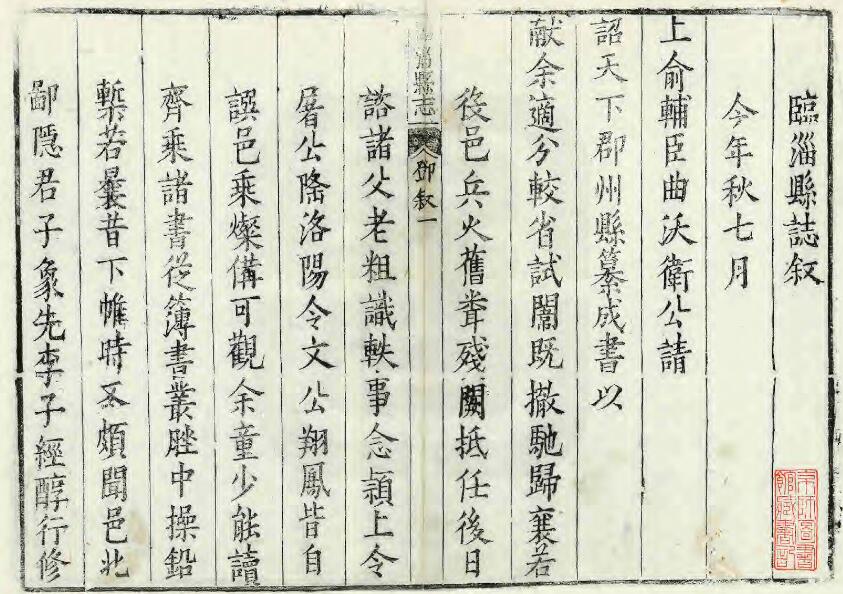 臨淄縣誌叙
今年秋七月
上俞輔臣曲沃衛公請
詔天下郡州縣纂成書以
献余適分較省試闈既撤馳歸襄若
役邑兵火舊耸残闕抵任後日
淄縣志
叙一
諮諸父老粗識軼事念潁上令
屠公隆洛陽令文公翔鳳皆自
譔邑乘燦俻可觀余童少能讀
齊乘諸書从簿書叢脞中操鉛
槧若曩昔下帷時丕頗聞邑北
鄙隱君子象先李子經醇行修